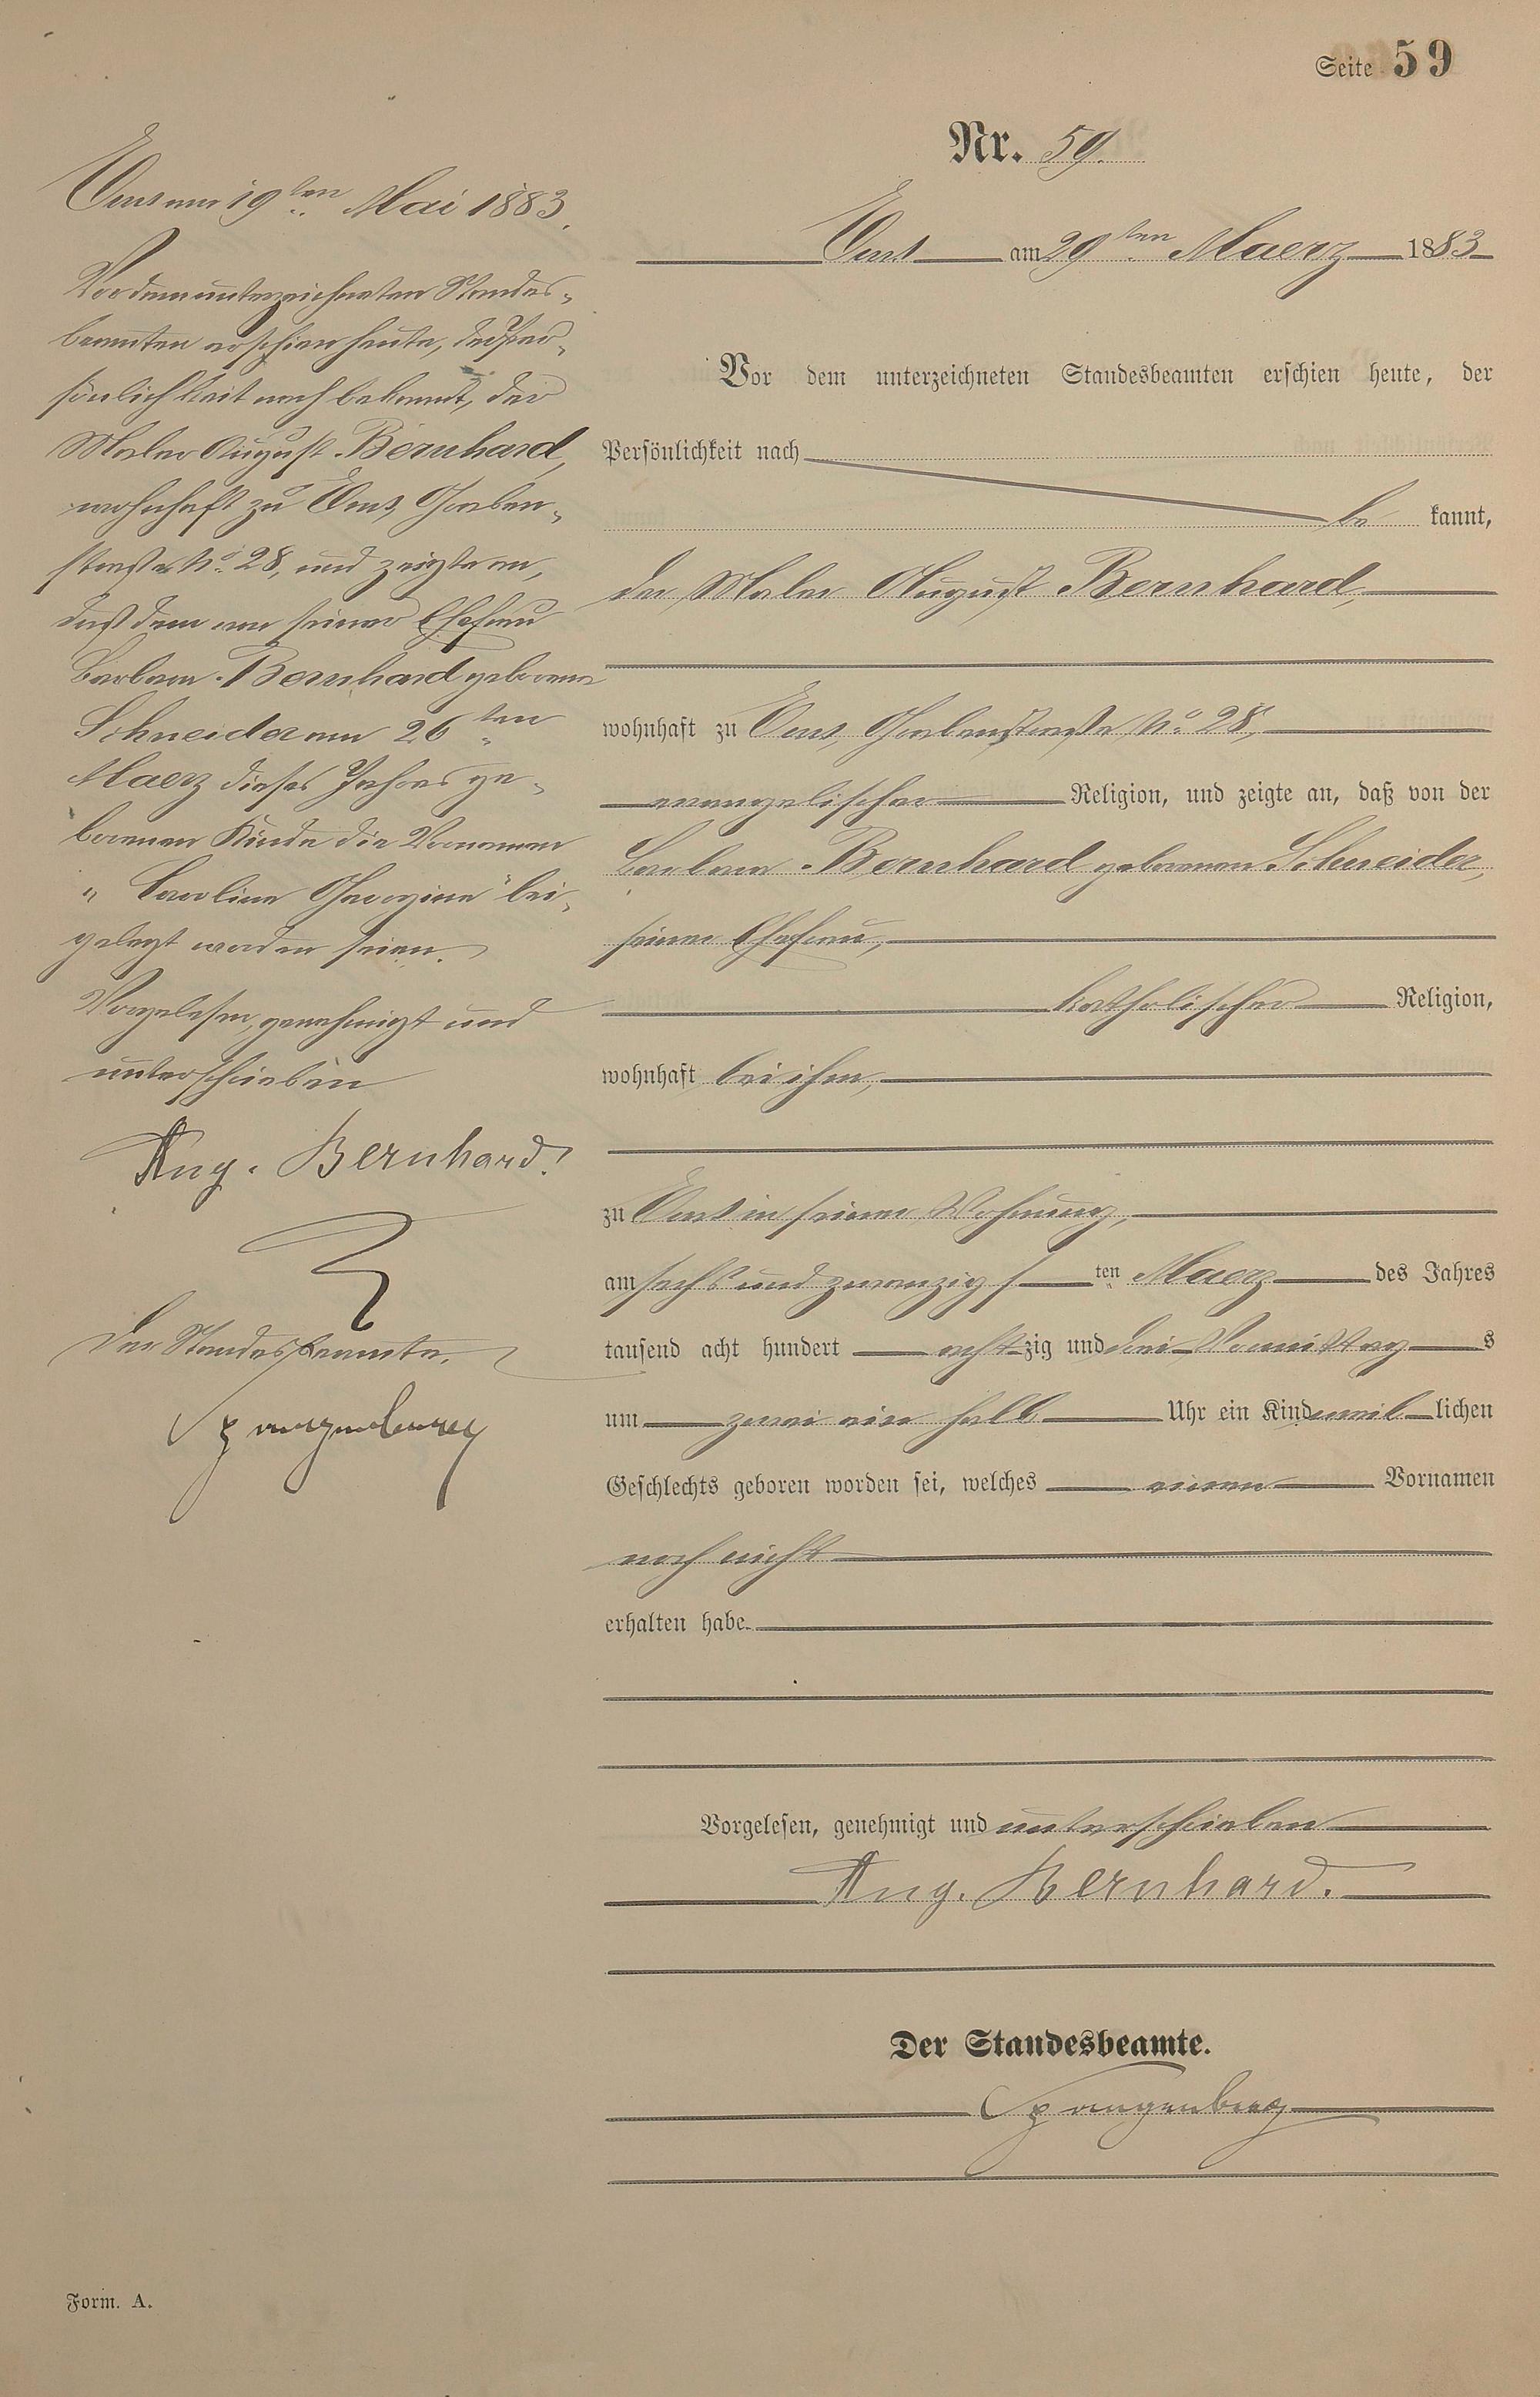 Seite 59
Nr. 59.
Ems am 29ten Maerz 1883
Vor dem unterzeichneten Standesbeamten erschien heute, der
Persönlichkeit nach
be kannt,
der Maler August Bernhard,
wohnhaft zu Ems, Grabenstraße No. 28,
evangelischer Religion, und zeigte an, daß von der
Barbara Bernhard geborenen Schneider,
seiner Ehefrau,
katholischer Religion,
wohnhaft bei ihm,
zu Ems in seiner Wohnung,
am sechs und zwanzigs ten Maerz des Jahres
tausend acht hundert acht zig und drei Vormittag s
um zwei ein halb Uhr ein Kind weib lichen
Geschlechts geboren worden sei, welches einen Vornamen
noch nicht
erhalten habe.
Vorgelesen, genehmigt und unterschrieben
Aug. Bernhard.
Der Standesbeamte.
Spangenberg
Ems am 19ten Mai 1883.
Vor dem unterzeichneten Standes-
beamten erschien heute, der Per-
sönlichkeit nach bekannt, der
Maler August Bernhard,
wohnhaft zu Ems, Graben-
straße No. 28, und zeigte an,
daß dem von seiner Ehefrau
Barbara Bernhard geborene
Schneider am 26ten
Maerz dieses Jahres ge-
borenen Kinde die Vornamen
"Caroline Georgine" bei-
gelegt worden seien.
Vorgelesen, genehmigt und
unterschrieben
Aug. Bernhard.
Der Standesbeamte.
Spangenberg
Form. A.